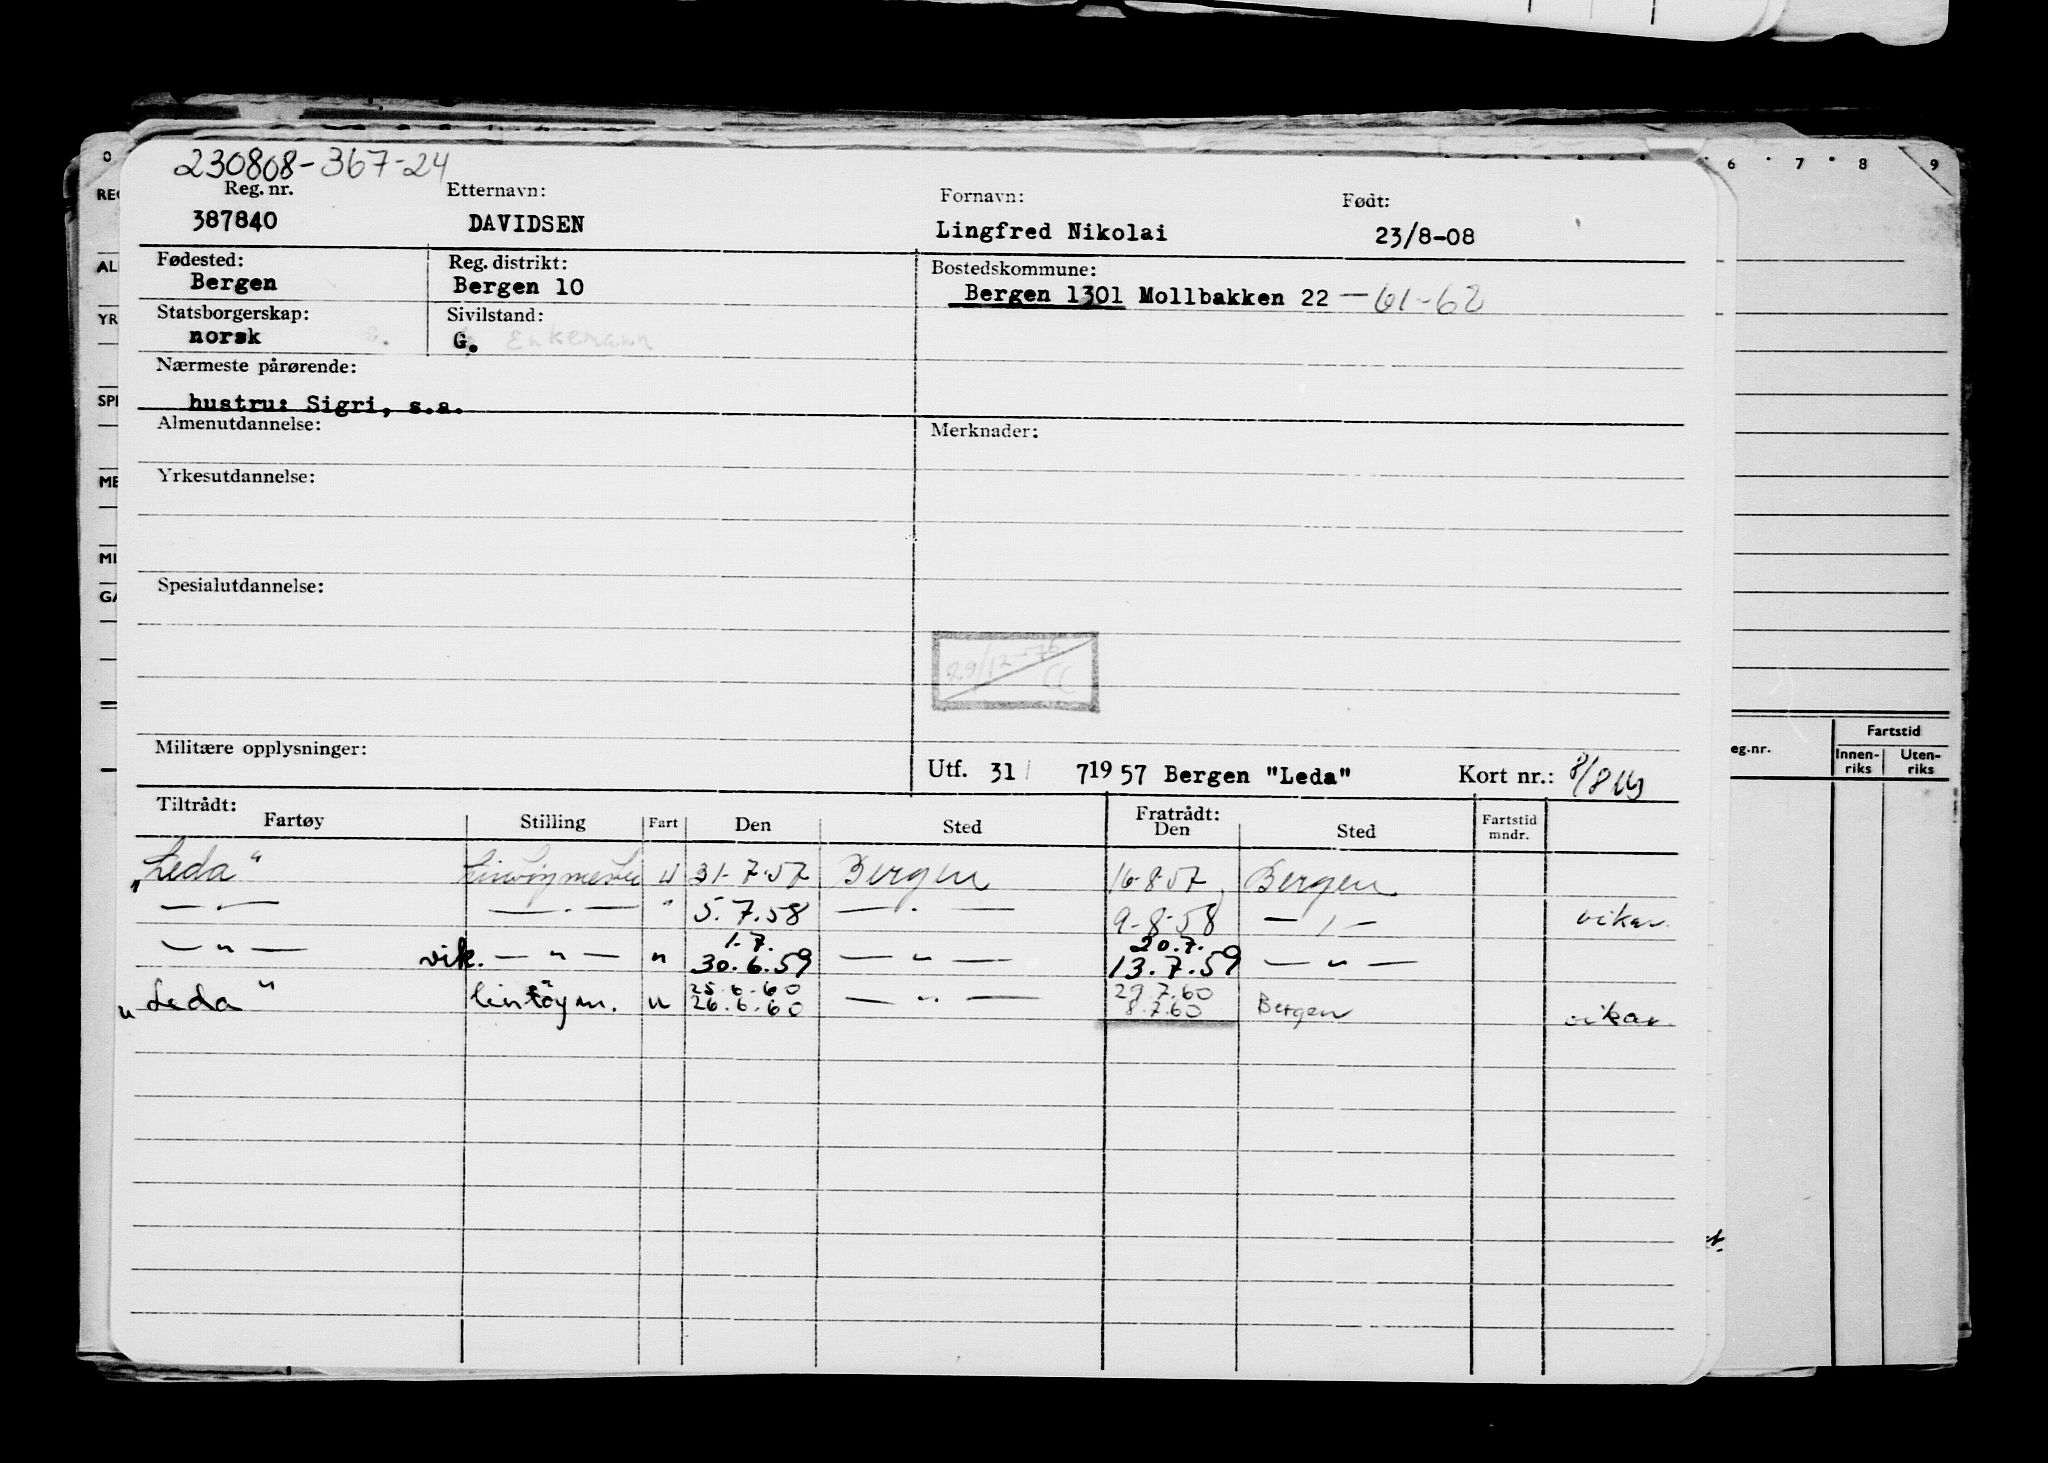 230808-367-24
Reg. nr. Etternavn: Fornavn: Født:
387840 DAVIDSEN Lingfred Nikolai 23/8-08
Fødested: Reg. distrikt: Bostedskommune:
Bergen Bergen 10 Bergen 1301 Mollbakken 22 — 61-62
Statsborgerskap: Sivilstand:
norsk G. Enkemann
Nærmeste pårørende:
hustru: Sigri, s.a.
Almenutdannelse: Merknader:
Yrkesutdannelse:
Spesialutdannelse:
29/12-76
CC
Militære opplysninger:
Utf. 31/ 7 19 57 Bergen "Leda" Kort nr.:
Tiltrådt: Fratrådt:
Fartøy Stilling Fart Den Sted Den Sted Fartstid mndr.
"Leda" Lintøymester U 31-7-57 Bergen 16-8-57 Bergen
— " — — " — " 5.7.58 — " — 9-8-58 — " — vikar.
1.7. 20.7.
— " — vik. — " — " 30.6.59 — " — 13.7.59 — " —
25.6.60 29.7.60
"Leda" lintøym. u 26.6.60 — " — 8.7.60 Bergen vikar.
6 7 8 9
eg.nr. Fartstid
Innen-riks Uten-riks